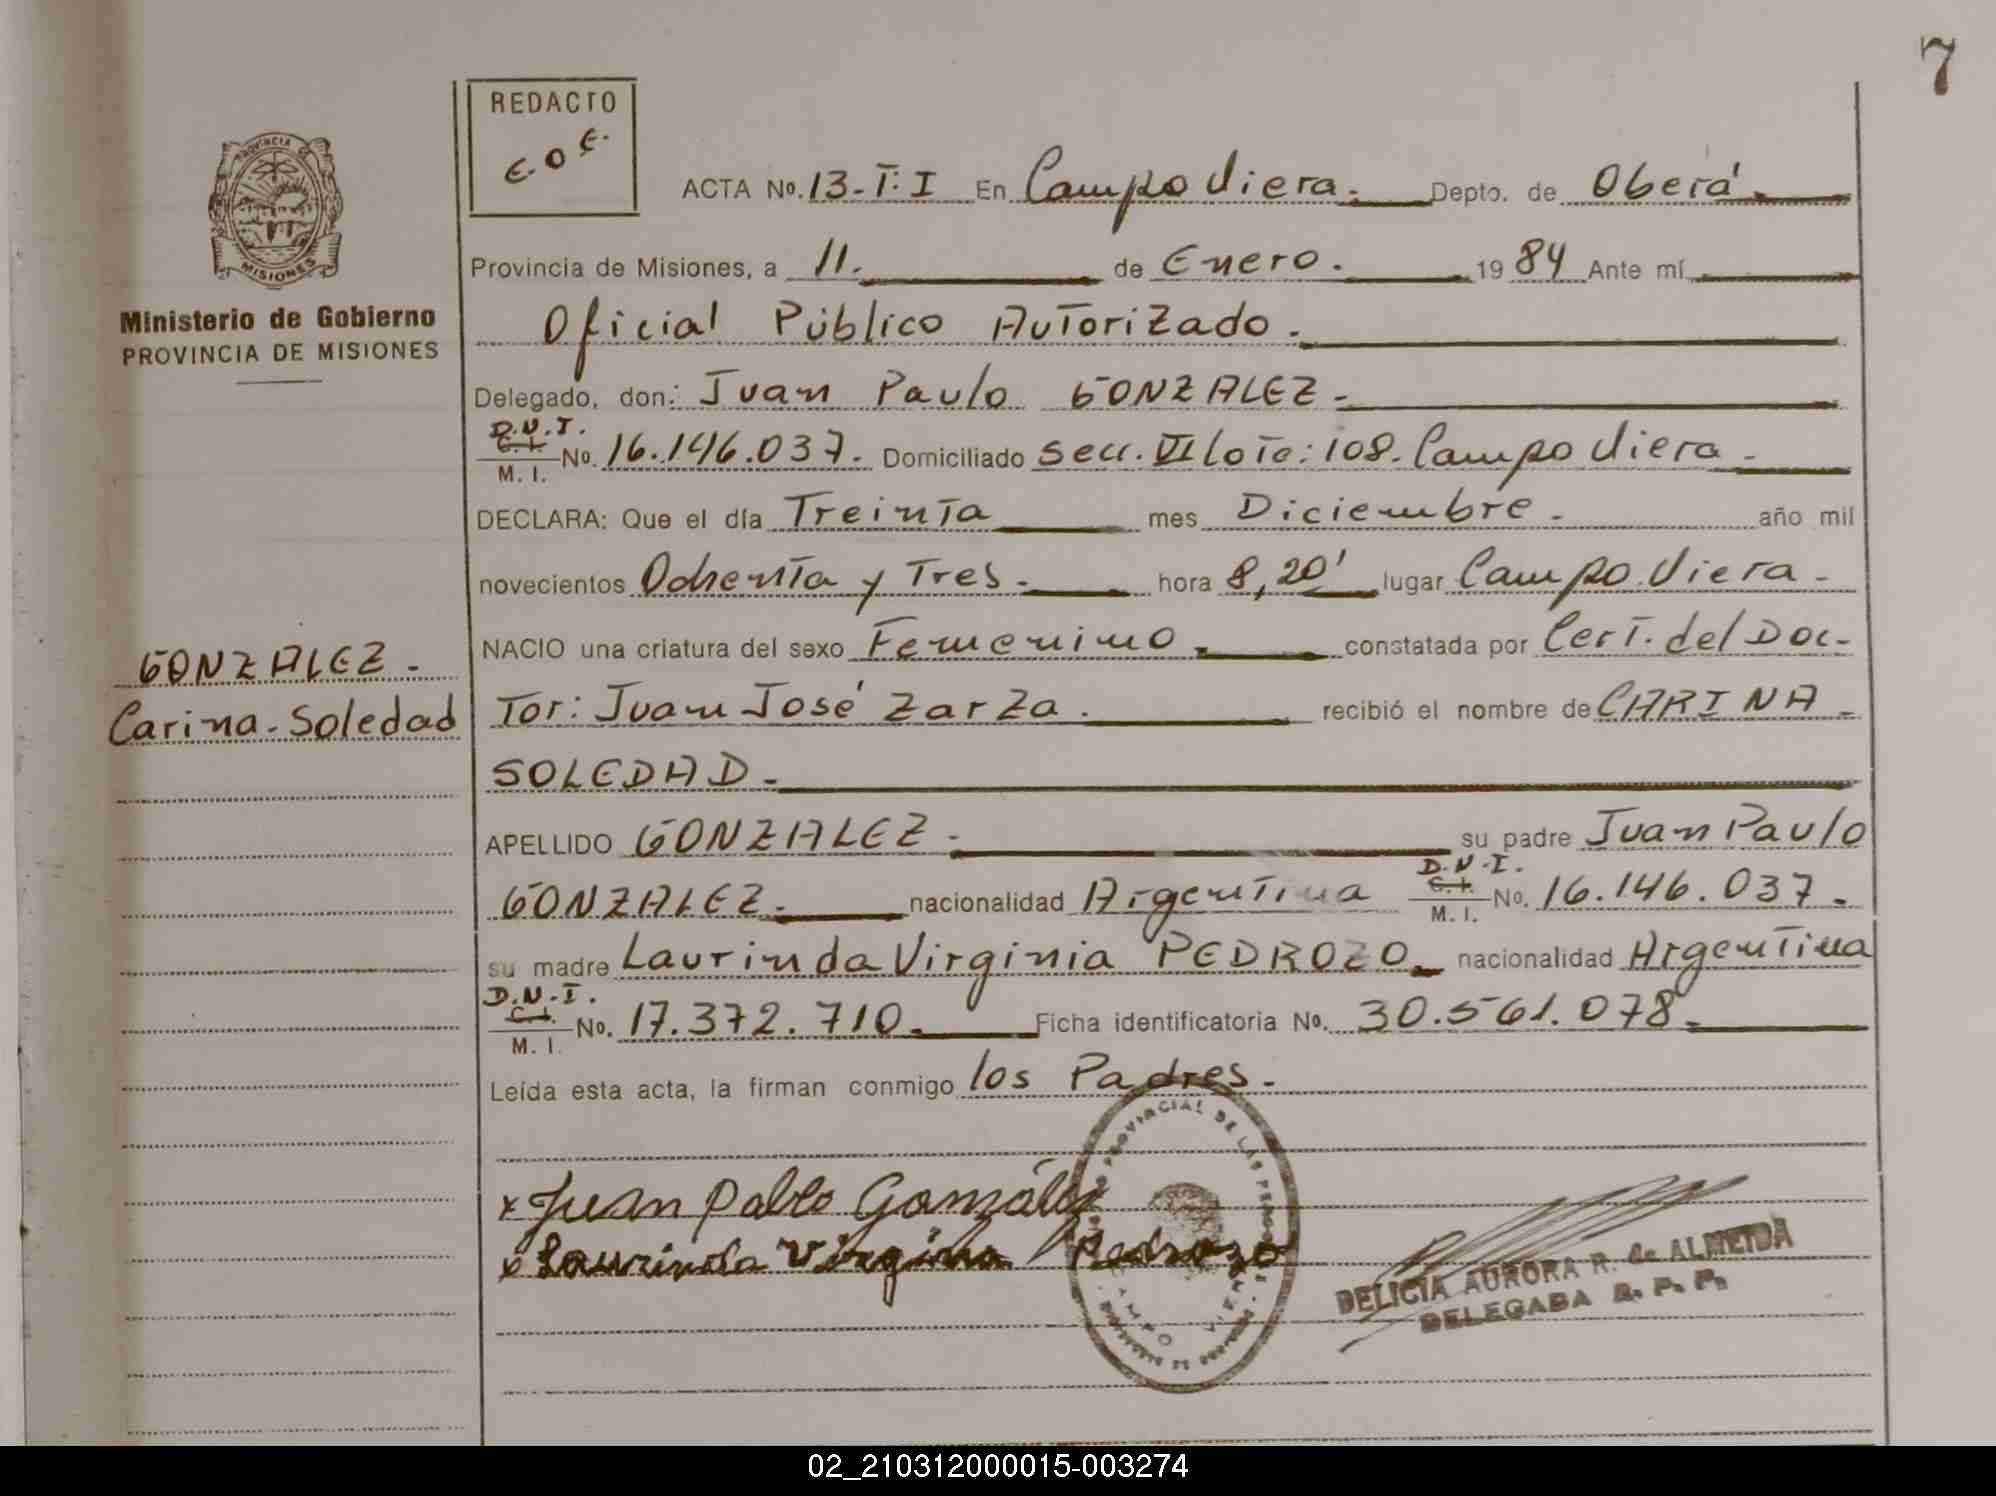 7
REDACTO
E.O.E.
PROVINCIA DE
MISIONES
Ministerio de Gobierno
PROVINCIA DE MISIONES
ACTA No. 13-T:I En Campo Viera. Depto. de Oberá.
Provincia de Misiones, a 11. de Enero. 19 84 Ante mí
Oficial Público Autorizado.
Delegado, don: Juan Paulo GONZALEZ.
D.N.I.
C. I. No. 16.146.037. Domiciliado Secc. VI Lote: 108. Campo Viera.
M. I.
DECLARA: Que el día Treinta mes Diciembre. año mil
novecientos Ochenta y Tres. hora 8,20' lugar Campo Viera.
NACIO una criatura del sexo Femenino. constatada por Cert. del Doc-
GONZALEZ.
Carina-Soledad
tor: Juan José Zarza. recibió el nombre de CARINA
SOLEDAD.
APELLIDO GONZALEZ. su padre Juan Paulo
D.N.I.
GONZALEZ. nacionalidad Argentina C. I. No. 16.146.037.
M. I.
su madre Laurinda Virginia PEDROZO. nacionalidad Argentina
D.N.I.
C. I. No. 17.372.710. Ficha identificatoria No. 30.561.078.
M. I.
Leída esta acta, la firman conmigo los Padres.
PROVINCIAL DE LAS PERSONAS
x Juan Pablo González
x Laurinda Virginia Pedrozo
CAMPO VIERA
DELICIA AURORA R. de ALMEIDA
DELEGADA R. P. P.
02_210312000015-003274